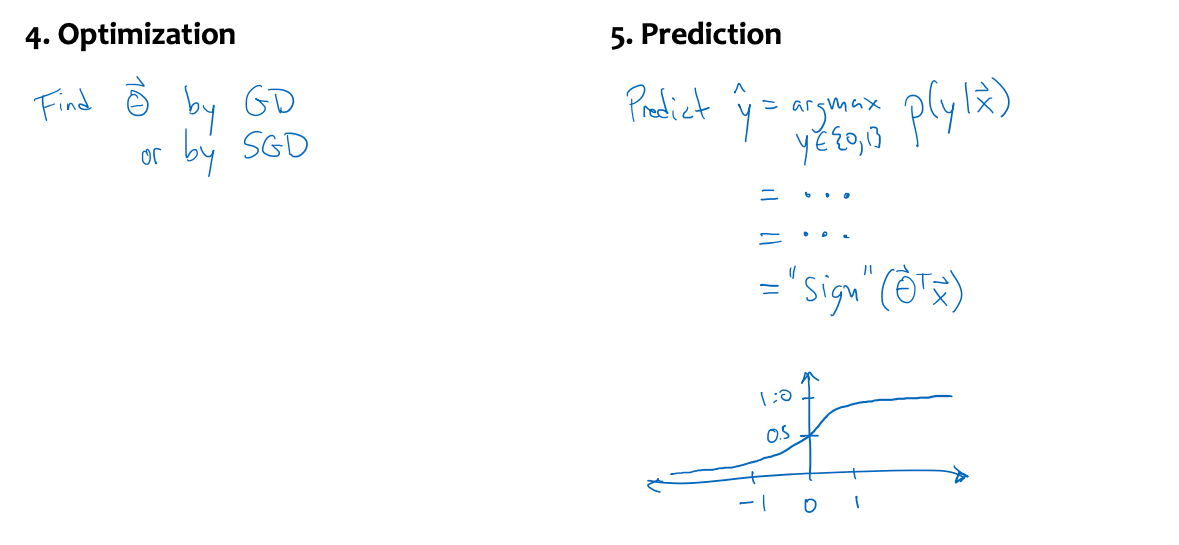 4. Optimization
Find θ⃗ by GD
or by SGD
5. Prediction
Predict ŷ = argmax p(y|x⃗)
y∈{0,1}
= ...
= ...
= "sign"(θ⃗ᵀx⃗)
1.0
0.5
-1 0 1